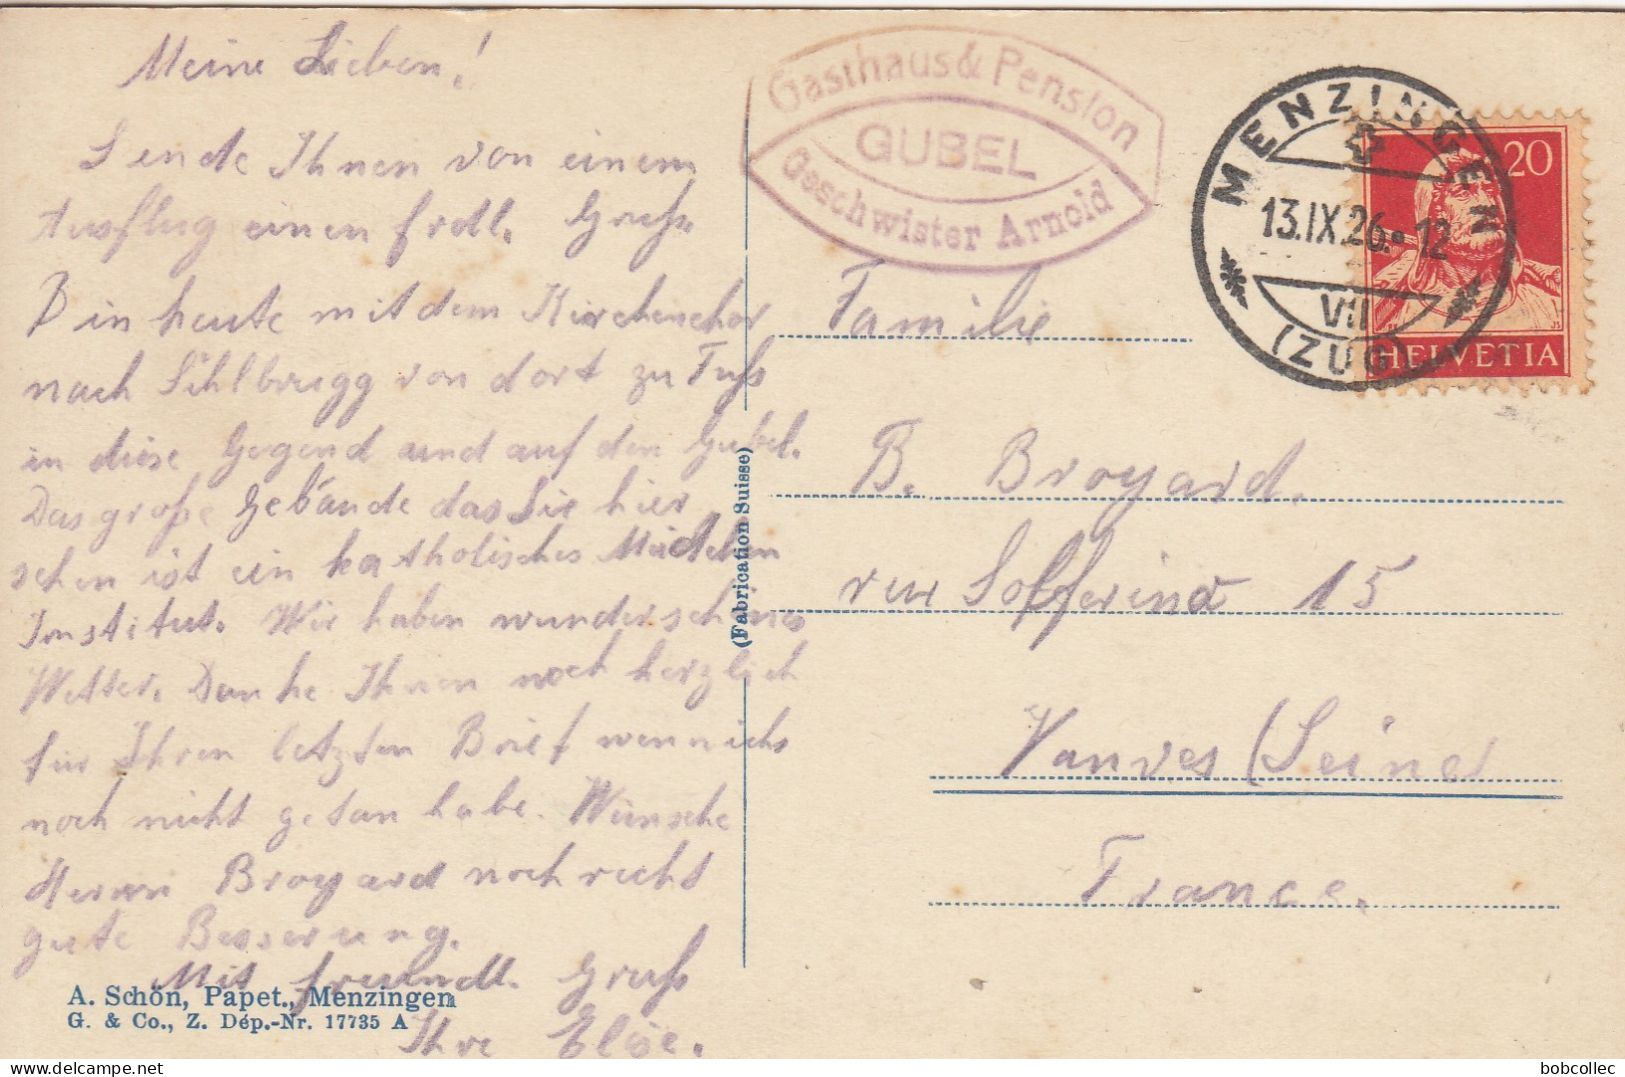 Meine Lieben!
Sende Ihnen von einem
Ausflug einen frdl. Gruß.
Bin heute mit dem Kirchenchor
nach Sihlbrugg von dort zu Fuß
in diese Gegend und auf den Gubel.
Das große Gebäude das Sie hier
sehen ist ein katholisches Mädchen
Institut. Wir haben wunderschönes
Wetter. Danke Ihnen noch herzlich
für Ihren letzten Brief wenn ichs
noch nicht getan habe. Wünsche
Herrn Broyard noch recht
gute Besserung.
Mit freundl. Gruß
Ihre Elise.
A. Schön, Papet., Menzingen
G. & Co., Z. Dép.-Nr. 17735 A
(Fabrication Suisse)
Gasthaus & Pension
GUBEL
Geschwister Arnold
MENZINGEN
13.IX.26.•12
VII
(ZUG)
20
HELVETIA
Familie
B. Broyard.
rue Solferina 15
Vanves (Seine)
France.
bobcollec